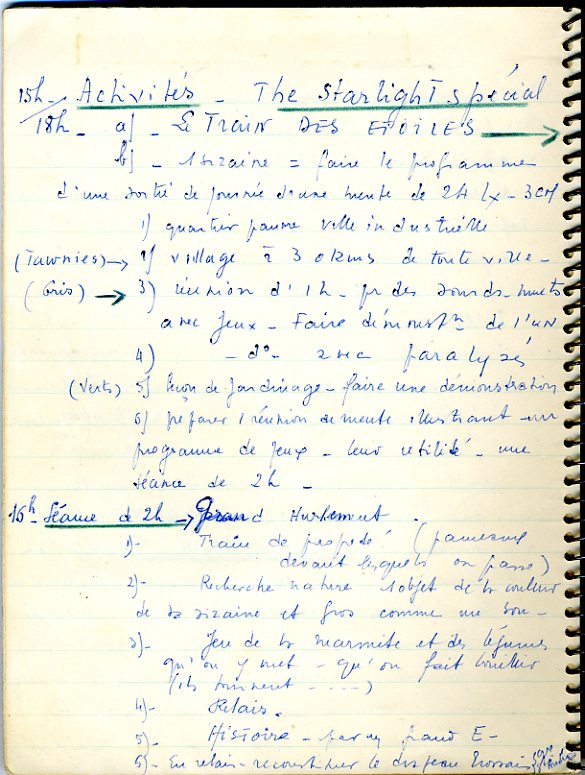 15h - Activités - The Starlight spécial
18h - a) - LE TRAIN DES ETOILES →
b) - 1 sizaine = faire le programme
d'une sortie de journée d'une meute de 24 Lx - 3 Ch
1) quartier pauvre ville industrielle
(Tawnies) → 2) village à 30 kms de toute ville -
(Gris) → 3) réunion d'1h - pr des sourds-muets
avec jeux - Faire démonstn de l'un
4) - do - avec paralysés
(Verts) 5) leçon de jardinage - faire une démonstration
6) préparer 1 réunion de meute illustrant un
programme de jeux - leur utilité - une
séance de 2h -
16h - Séance d 2h → Grand Hurlement.
1) - Train de
devant lesquels on passe)
2) - Recherche nature 1 objet de la couleur
de sa sizaine et gros comme un sou -
3) - Jeu de la marmite et des légumes
qu'on y met - qu'on fait bouillir
(ils tournent ----)
4) - Relais.
5) - Histoire - par un grand E -
6) - En relais - reconstituer le drapeau